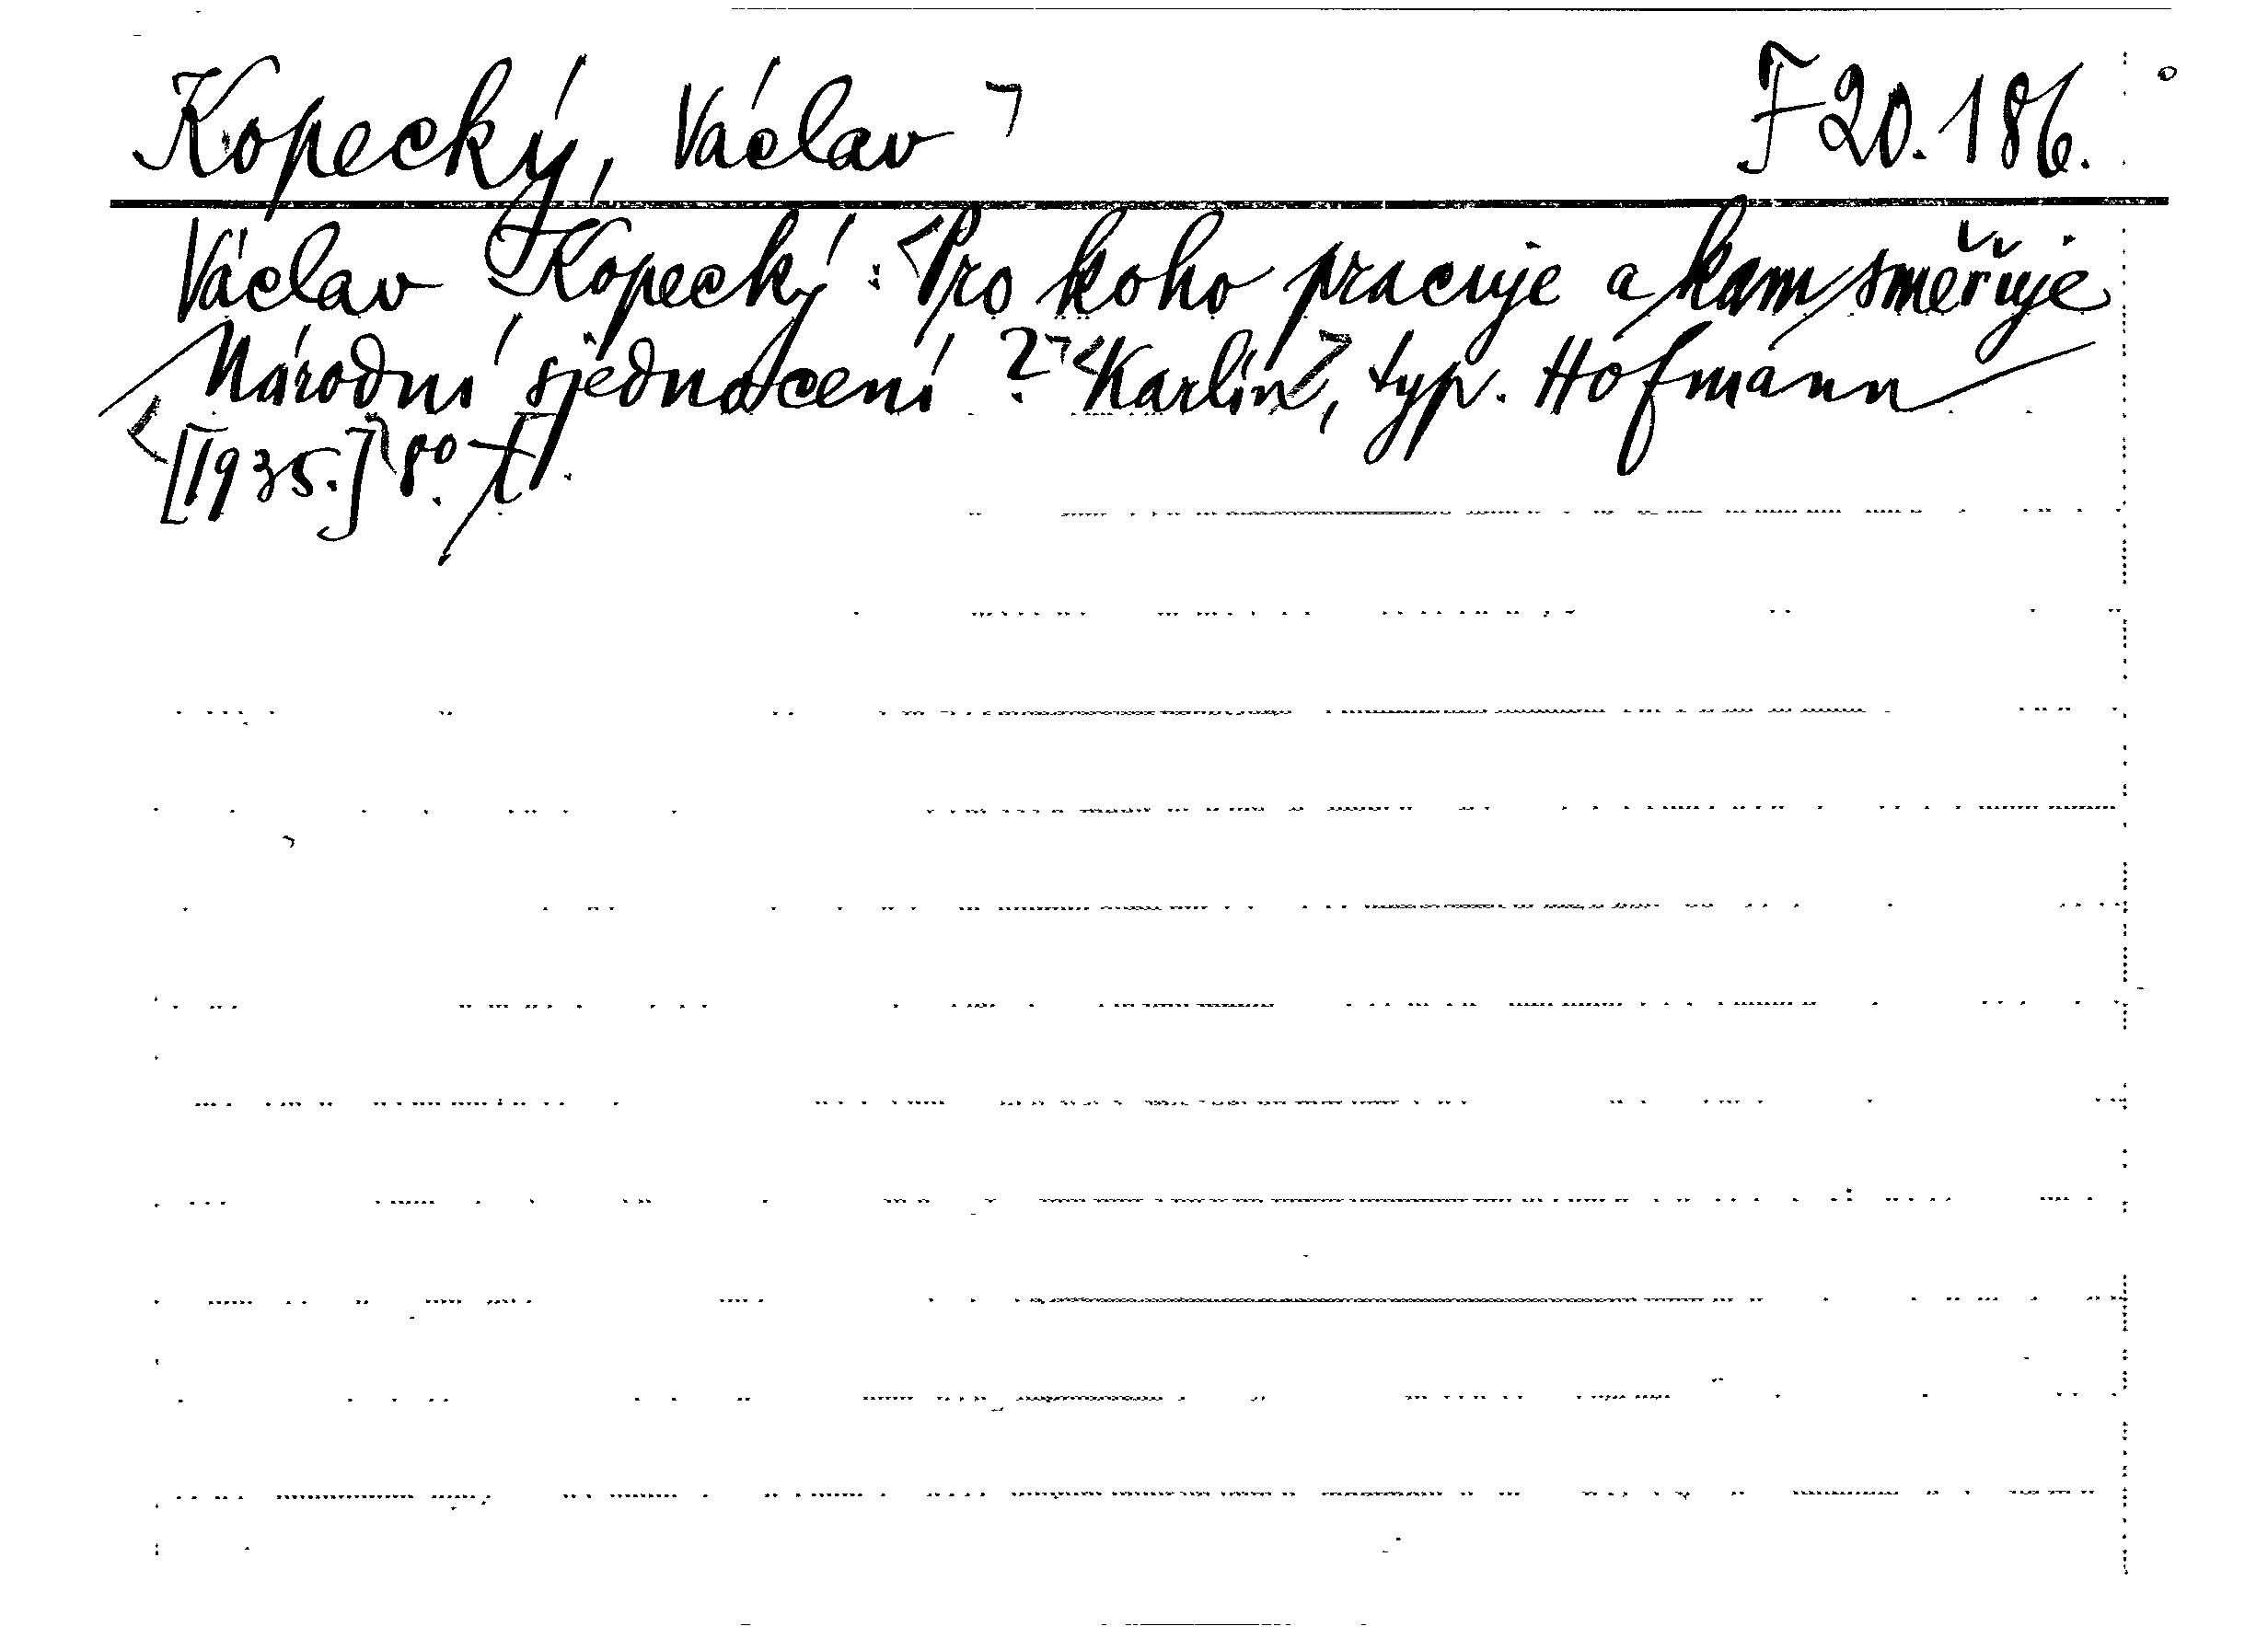 Kopecký, Václav F 20.186.
Václav Kopecký: Pro koho pracuje a kam směřuje
Národní sjednocení? Karlín, typ. Hofmann
[1935.] 8°.